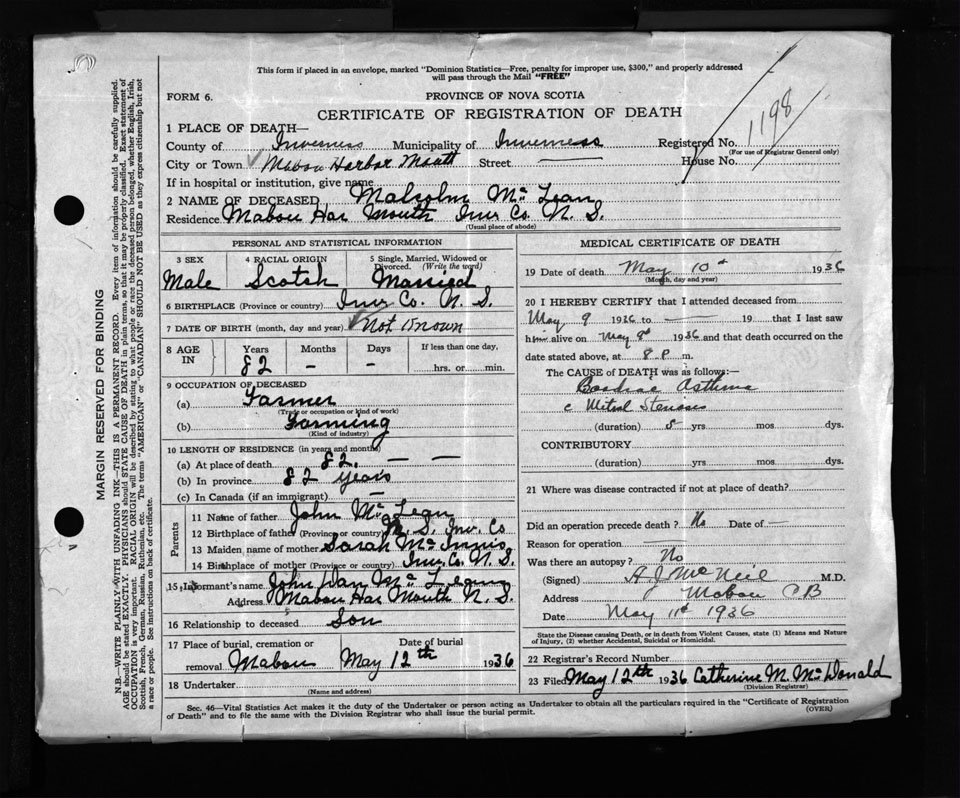 This form if placed in an envelope, marked "Dominion Statistics—Free, penalty for improper use, $300," and properly addressed
will pass through the Mail "FREE"
FORM 6.
PROVINCE OF NOVA SCOTIA
CERTIFICATE OF REGISTRATION OF DEATH
1198
1 PLACE OF DEATH—
County of Inverness Municipality of Inverness Registered No.
(For use of Registrar General only)
City or Town Mabou Harbor Mouth Street — House No.
If in hospital or institution, give name
2 NAME OF DECEASED Malcolm Mc Lean
Residence Mabou Har Mouth Inv Co. N. S.
(Usual place of abode)
PERSONAL AND STATISTICAL INFORMATION
3 SEX
Male
4 RACIAL ORIGIN
Scotch
5 Single, Married, Widowed or
Divorced. (Write the word)
Married
6 BIRTHPLACE (Province or country) Inv Co. N. S.
7 DATE OF BIRTH (month, day and year) Not Known
8 AGE IN
Years Months Days If less than one day,
82 - - hrs. or min.
9 OCCUPATION OF DECEASED
(a) Farmer
(Trade or occupation or kind of work)
(b) Farming
(Kind of industry)
10 LENGTH OF RESIDENCE (in years and months)
(a) At place of death 82. — —
(b) In province 82 years
(c) In Canada (if an immigrant) —
Parents
11 Name of father John Mc Lean
12 Birthplace of father (Province or country) N. S. Inv. Co
13 Maiden name of mother Sarah Mc Innis
14 Birthplace of mother (Province or country) Inv Co. N. S.
15 Informant's name John Dan Mc Lean
Address Mabou Har Mouth N. S.
16 Relationship to deceased Son
17 Place of burial, cremation or Date of burial
removal Mabou May 12th 1936
18 Undertaker
(Name and address)
MEDICAL CERTIFICATE OF DEATH
19 Date of death May 10th 1936
(Month, day and year)
20 I HEREBY CERTIFY that I attended deceased from
May 9 1936 to — 19 that I last saw
him alive on May 9th 1936 and that death occurred on the
date stated above, at 8 P m.
The CAUSE of DEATH was as follows:—
Cardiac Asthma
c Mitral Stenosis
(duration) 5 yrs mos dys.
CONTRIBUTORY
(duration) yrs mos dys.
21 Where was disease contracted if not at place of death?
Did an operation precede death? No Date of —
Reason for operation —
Was there an autopsy? No
(Signed) A J McNeil M.D.
Address Mabou CB
Date May 11th 1936
State the Disease causing Death, or in death from Violent Causes, state (1) Means and Nature
of Injury, (2) whether Accidental, Suicidal or Homicidal.
22 Registrar's Record Number
23 Filed May 12th 1936 Catherine M. McDonald
(Division Registrar)
Sec. 46—Vital Statistics Act makes it the duty of the Undertaker or person acting as Undertaker to obtain all the particulars required in the "Certificate of Registration
of Death" and to file the same with the Division Registrar who shall issue the burial permit.
(OVER)
MARGIN RESERVED FOR BINDING
N.B.—WRITE PLAINLY WITH UNFADING INK—THIS IS A PERMANENT RECORD. Every item of information should be carefully supplied.
AGE should be stated EXACTLY. PHYSICIANS should STATE CAUSE OF DEATH in plain terms, so that it may be properly classified. Exact statement of
OCCUPATION is very important. RACIAL ORIGIN will be described by stating to what people or race the deceased person belonged, whether English, Irish,
Scottish, French, German, Russian, Ruthenian, etc. The terms "AMERICAN" or "CANADIAN" SHOULD NOT BE USED as they express citizenship but not
a race or people. See instructions on back of certificate.